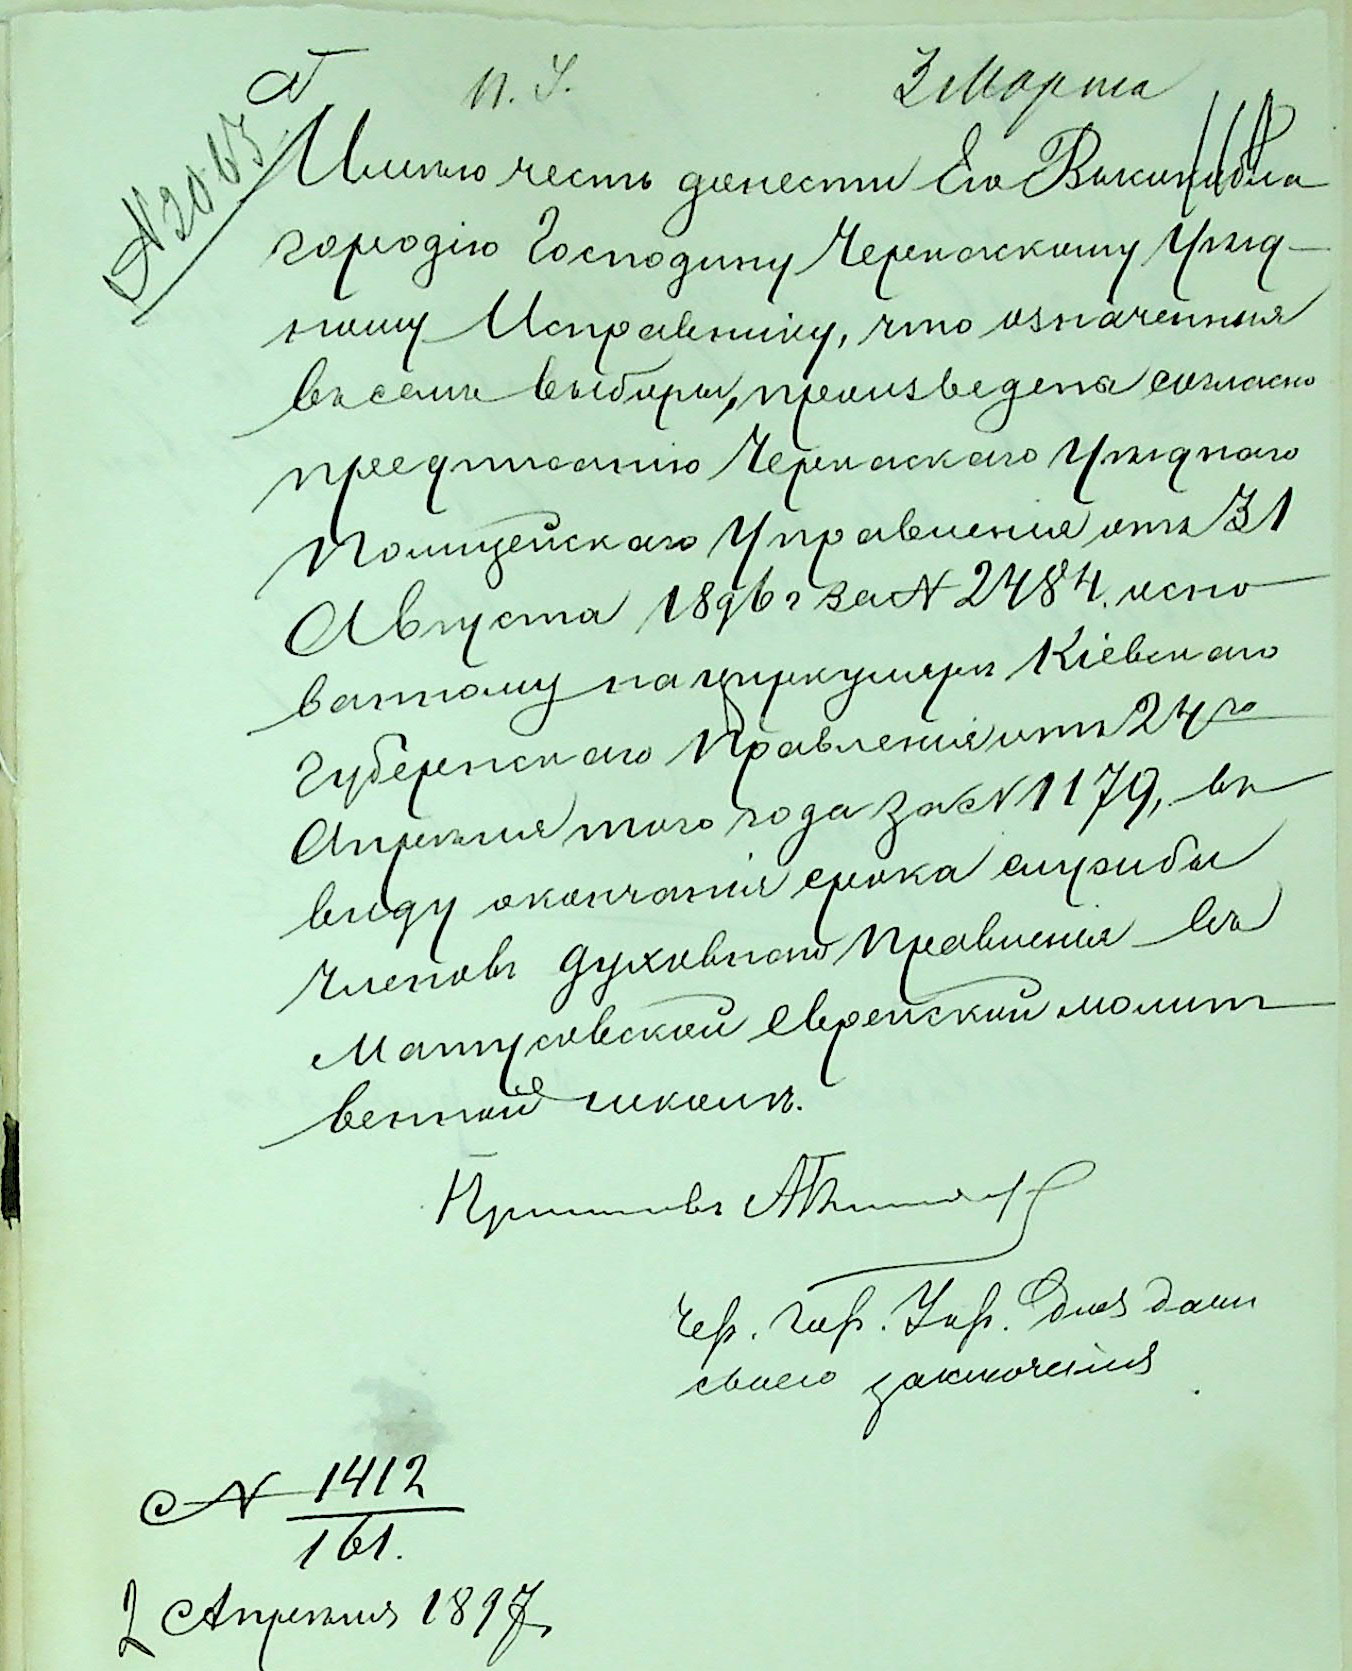 П. У.
3 Марта
№ 2063
Имѣю честь донести Его Высокобла
городію Господину Черкасскому Уѣзд-
ному Исправнику, что означенныя
въ семъ выборы, произведена согласно
предписанію Черкаскаго Уѣзднаго
Полицейскаго Управленія отъ 31
Августа 1896 г за № 2484. осно
ванному на циркулярѣ Кіевскаго
Губернскаго Правленія отъ 24 го
Апрѣля того года за № 1179, въ
виду окончанія срока службы
членовъ духовнаго Правленія въ
Матусовской Еврейской молит
венной школѣ.
Приставъ
Чер. Гор. Упр. для дачи
своего заключенія
№ 1412
161.
2 Апрѣля 1897